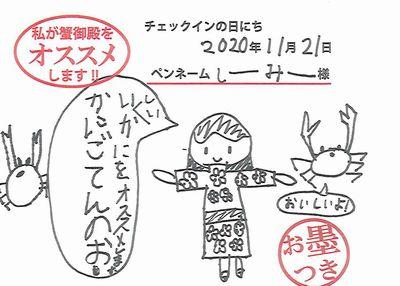 私が蟹御殿を
オススメ
します!!
チェックインの日にち
2020年11月21日
ペンネーム しーみー様
かにごてんのお
いしいかにをオススメします
おいしいよ!
お墨
つき